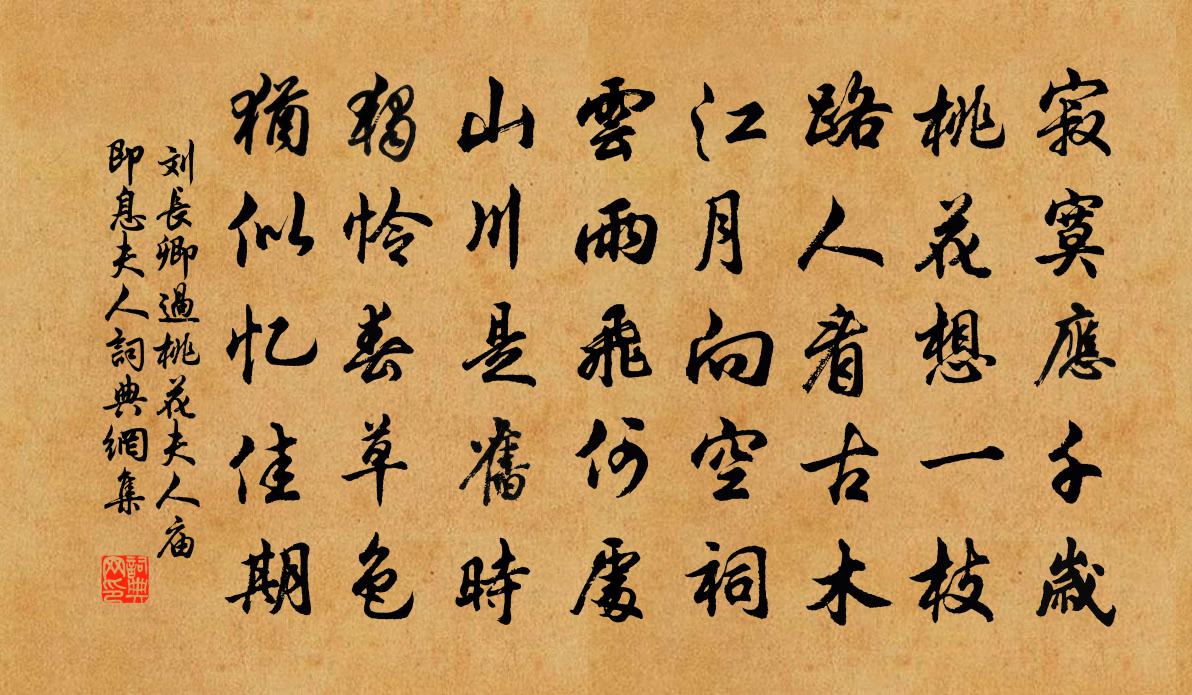 寂寞應千歲
桃花想一枝
路人看古木
江月向空祠
雲雨飛何處
山川是舊時
獨憐春草色
猶似忆佳期
刘長卿過桃花夫人庙
即息夫人詞典網集
詞典网印